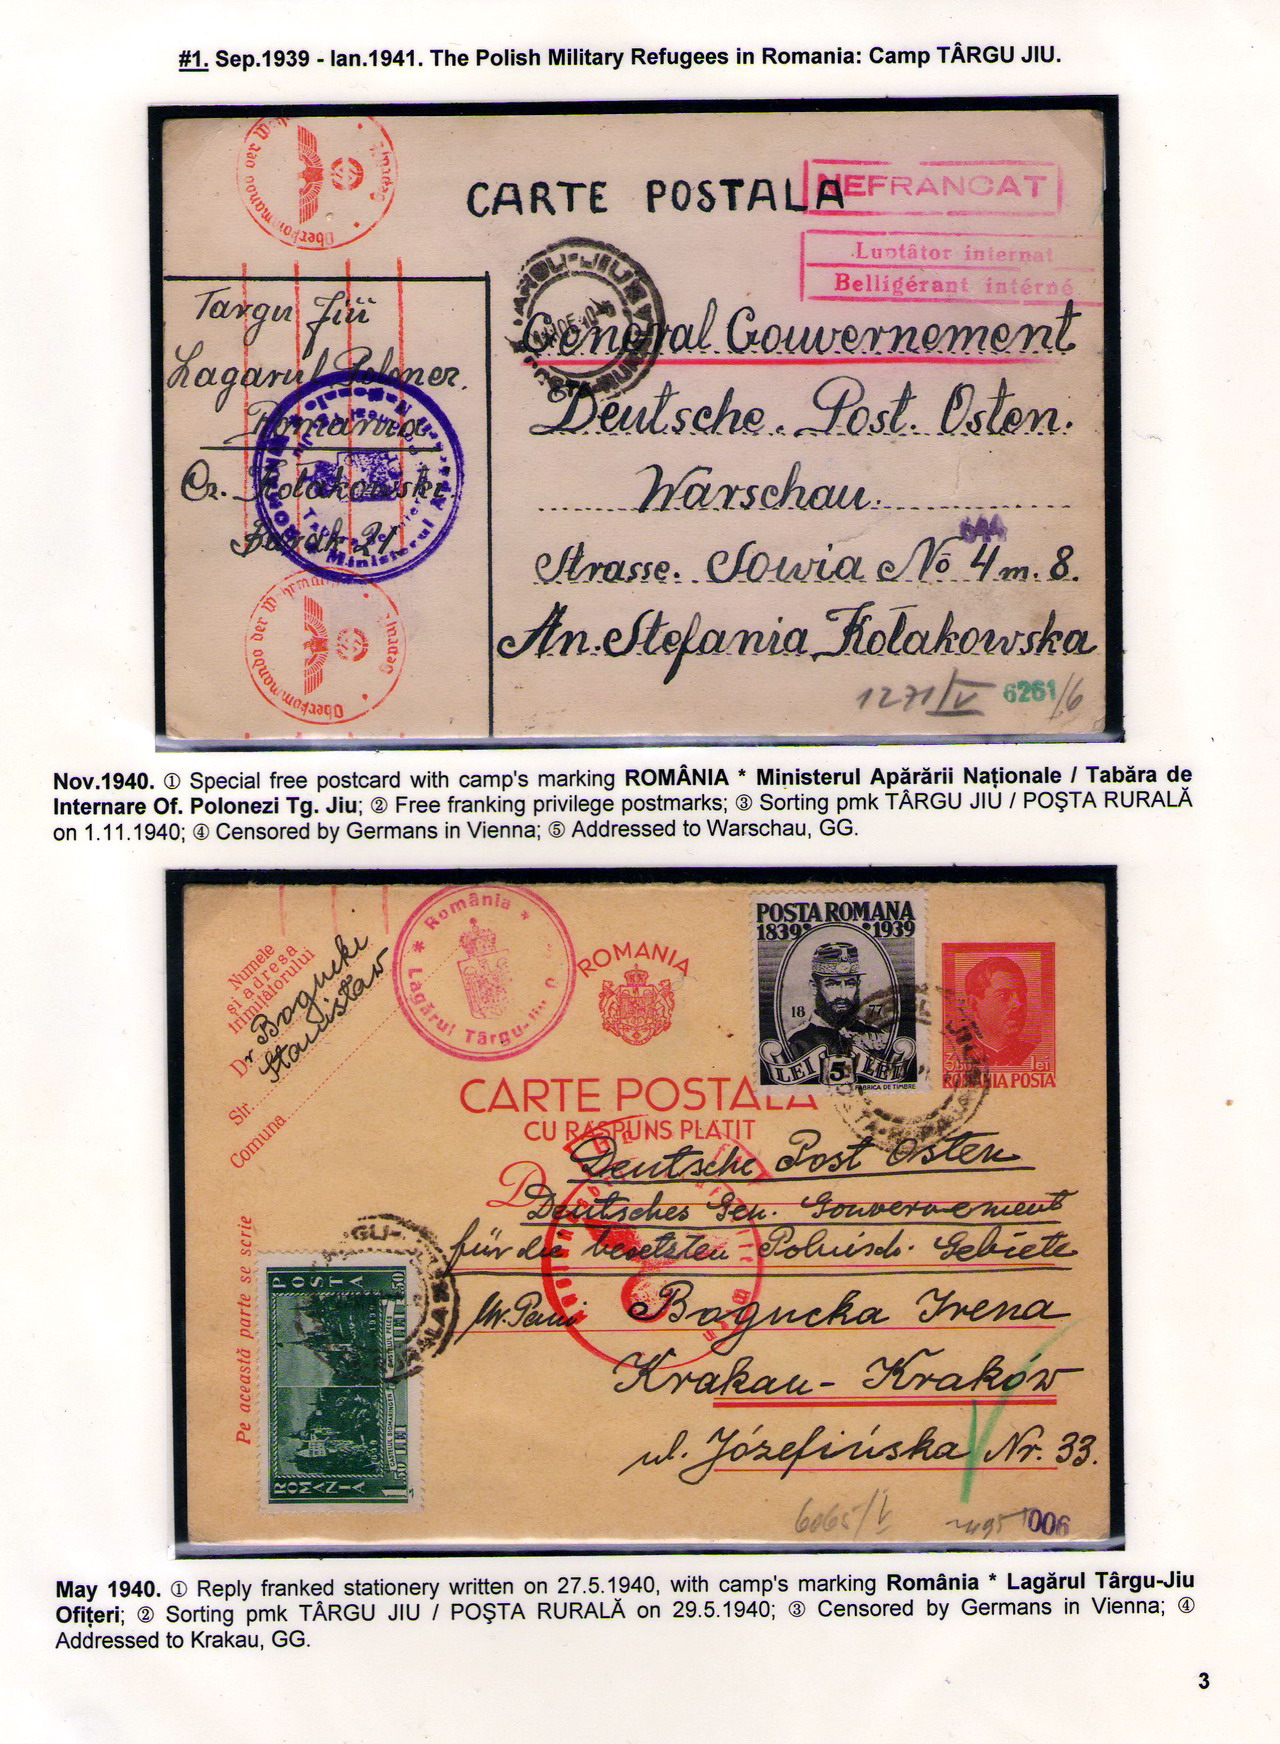 #1. Sep.1939 - Ian.1941. The Polish Military Refugees in Romania: Camp TÂRGU JIU.
Oberkommando der Wehrmacht
Geprüft
CARTE POSTALA
NEFRANCAT
Luptâtor internat
Belligérant interné
Targu Jiu
Lagarul Polonez.
Romania
Cz. Kołakowski
Barak 21
General Gouvernement
Deutsche. Post. Osten.
Warschau.
644
Strasse. Sowia No 4 m. 8.
An. Stefania Kołakowska
Oberkommando der Wehrmacht
1271/V 6261/6
Nov.1940. ① Special free postcard with camp's marking ROMÂNIA * Ministerul Apărării Naționale / Tabăra de
Internare Of. Polonezi Tg. Jiu; ② Free franking privilege postmarks; ③ Sorting pmk TÂRGU JIU / POȘTA RURALĂ
on 1.11.1940; ④ Censored by Germans in Vienna; ⑤ Addressed to Warschau, GG.
Numele
și adresa
trimițătorului
Dr Bagucki
Stanisław
Str.
Comuna
* România *
Lagărul Târgu-Jiu
ROMANIA
POSTA ROMANA
1839 1939
18 77
LEI 5 LEI
FABRICA DE TIMBRE
350 lei
ROMANIA POSTA
CARTE POSTALA
CU RASPUNS PLATIT
D
Deutsche Post Osten
Deutsches Gen. Gouvernement
für die besetzten Polnisch. Gebiete
W. Pani Bagucka Irena
Krakau - Kraków
ul. Józefińska Nr. 33.
Pe această parte se scrie
POSTA
ROMANIA
1.50 LEI
6065/V
006
May 1940. ① Reply franked stationery written on 27.5.1940, with camp's marking România * Lagărul Târgu-Jiu
Ofițeri; ② Sorting pmk TÂRGU JIU / POȘTA RURALĂ on 29.5.1940; ③ Censored by Germans in Vienna; ④
Addressed to Krakau, GG.
3